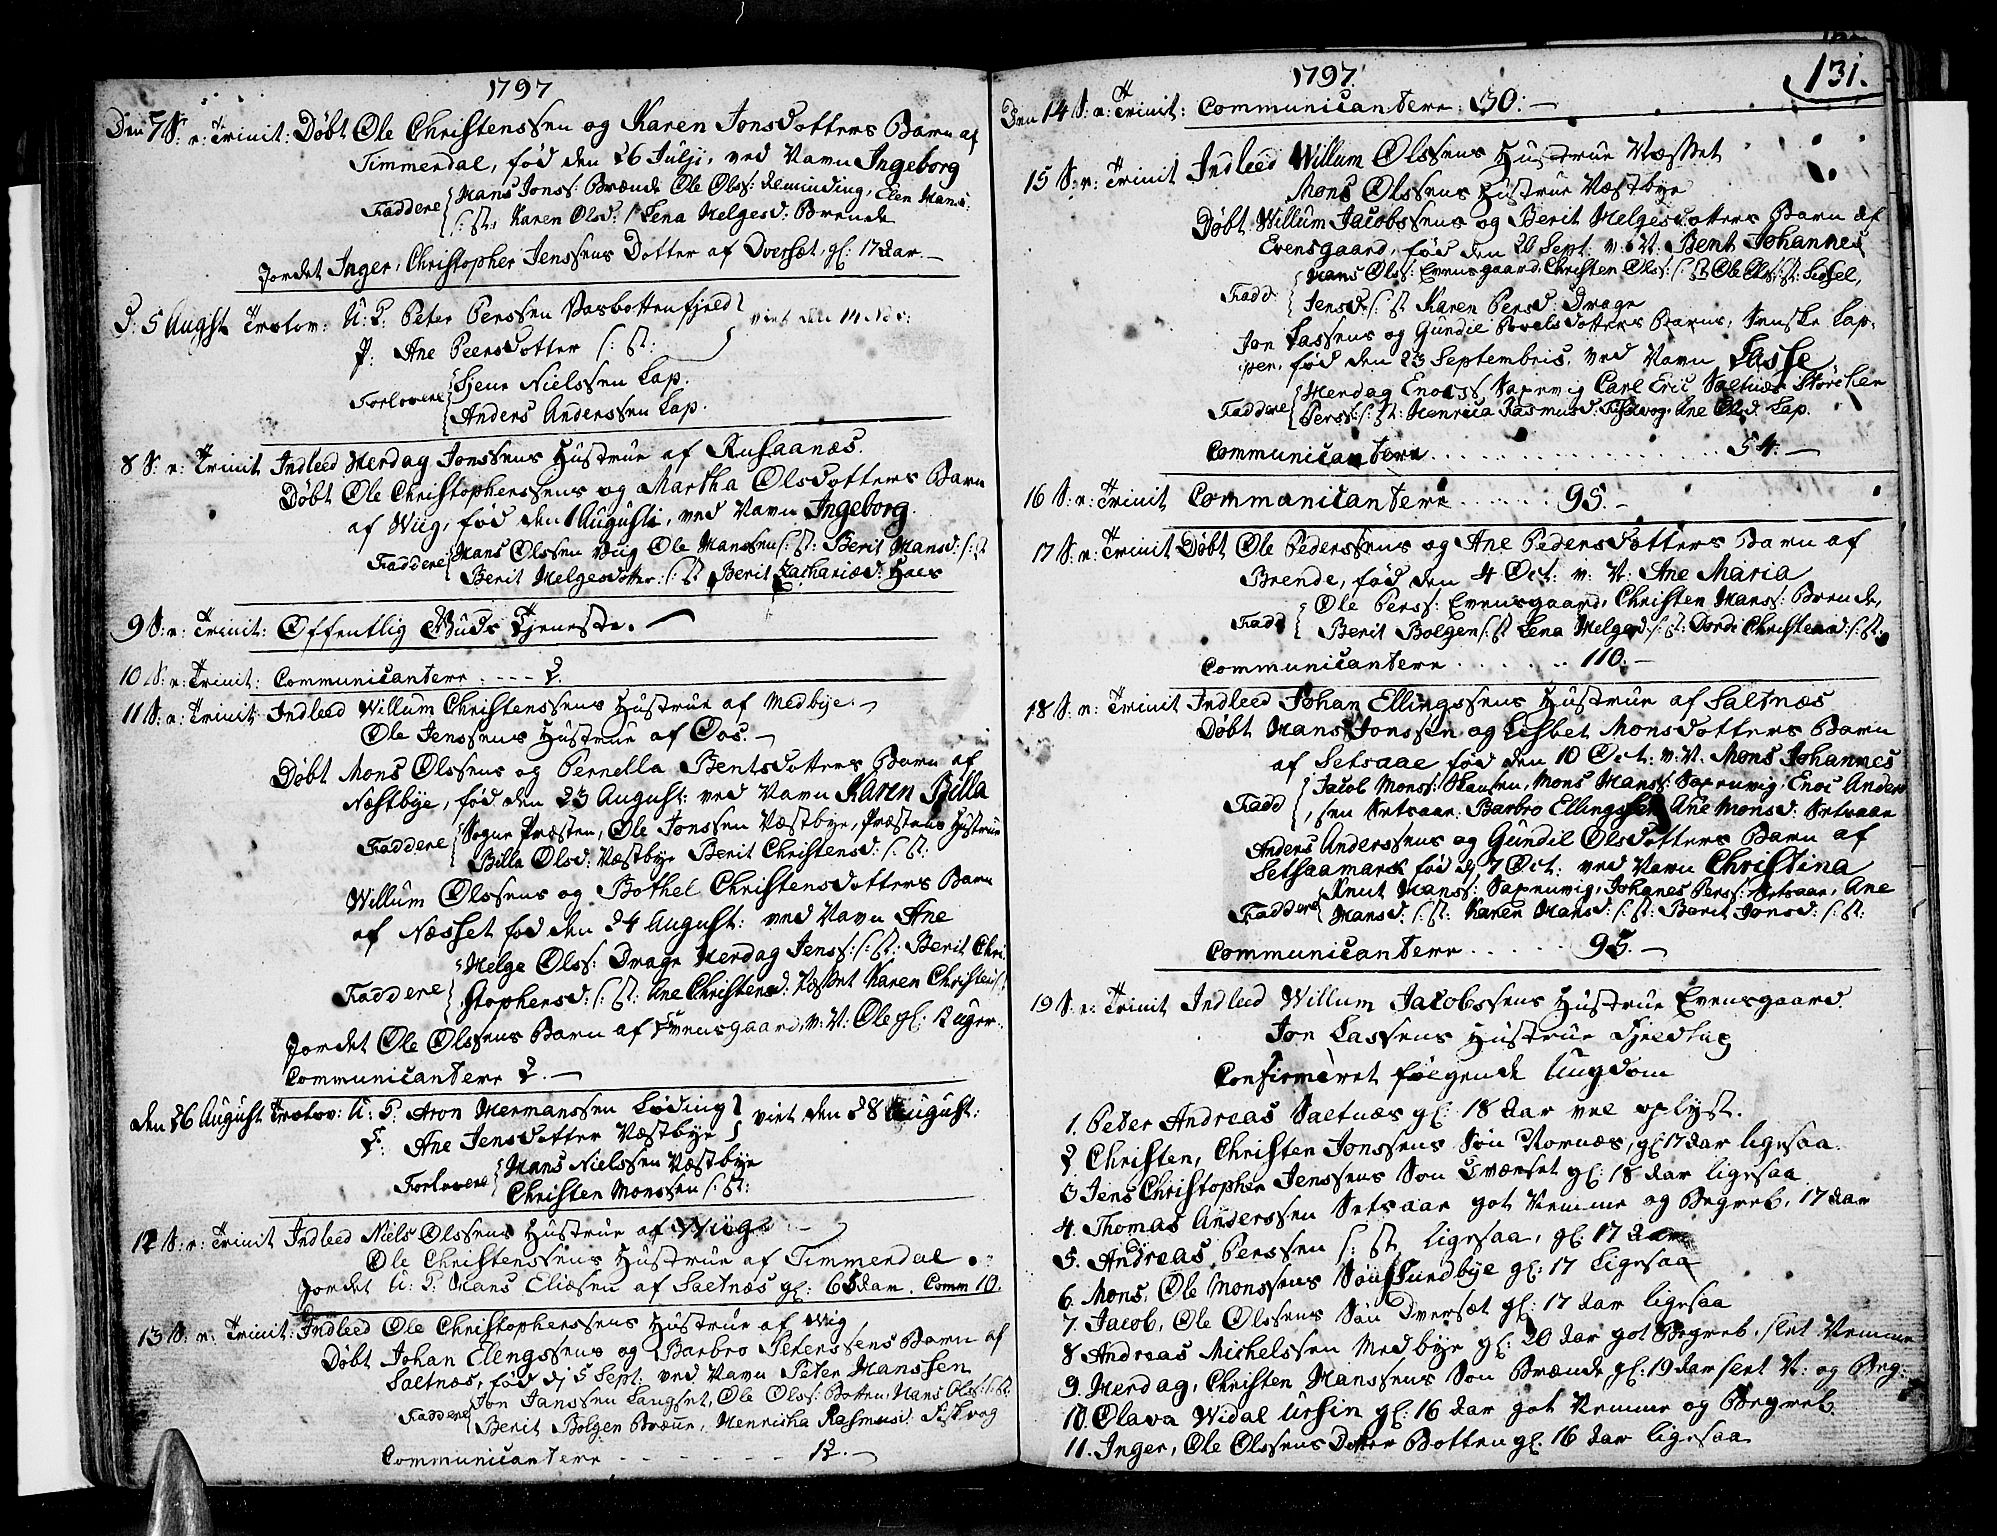 1797
Den 7 S: e: Trinit: Døbt Ole Christenssen og Karen Jonsdotters Barn af
Timmerdal, fød den 26 Julji, ved Navn Ingeborg
Faddere Hans Jonss: Brænde Ole Olss: Elen Hans:
/: St: Karen Olsd: / Lena Helgesd: Brende
Jordet Inger, Christopher Jenssens Dotter af Dverset, gl: 17 Aar.
D: 5 Augst Trolov: U: K: Peter Perssen viet den 14 Nov:
P: Ane Peersdotter /: St:
Forlovere Sjene Nielssen Lap.
Anders Anderssen Lap.
8 S: e: Trinit Indleed Herdag Jonssens Hustrue af Rusaanæs.
Døbt Ole Christopherssens og Martha Olsdotters Barn
af Wiig, fød den 1 Augusti, ved Navn Ingeborg.
Faddere Hans Olssen Wiig Ole Hanssen /: St: Berit Hansd: /: St
Berit Helgesdotter /: St Berit Zachariæd:
9 S: e: Trinit: Offentlig Guds Tjeneste.
10 S: e: Trinit: Communicantere . --- 2.
11 S: e: Trinit Indleed Willum Christenssens Hustrue af Medbye.
Ole Jenssens Hustrue af Oos.
Døbt Mons Olssens og Pernella Bentsdotters Barn af
Næstbye, fød den 23 August: ved Navn Karen Billa
Faddere Sogne Præsten, Ole Jonssen Væstbye, Præstens Hustrue
Billa Olsd: Væstbye Berit Christensd: /: St:
Willum Olssens og Bothel Christensdotters Barn
af Næsset fød den 24 August: ved Navn Ane
Helge Olss: Drage Herdag Jenss: /: St: Berit Chri
Faddere stophersd: /: St: Ane Christensd: Næsset Karen Christens
Jordet Ole Olssens Barn af Evensgaard, v: V: Ole gl: Uger.
Communicantere 2.
den 26 August Trolov: U: K. Aron Hermanssen Løding viet den 28 August:
P: Ane Jensdotter Væstbye
Forlovere Hans Nielssen Væstbye
Christen Monssen /: St:
12 S: e: Trinit Indleed Niels Olssens Hustrue af Wiig
Ole Christenssens Hustrue af Timmerdal
Jordet U: K. Hans Eliæsen af Saltnæs gl: 65 Aar. Comm 10.
13 S: e: Trinit: Indleed Ole Christopherssens Hustrue af Wiig
Døbt Johan Elengssens og Barbro Peterssens Barn af
Saltnæs, fød d: 5 Sept: ved Navn Peter Hanssen
Faddere Jon Janssen Langset, Ole Olss: Botten, Hans Olss: /: St:
Berit Bolgen Brænne, Henricha Rasmusd: Fiskvog
Communicantere - - - - - - 12.
1797
131.
Den 14 S: e: Trinit: Communicantere: 30.
15 S: e: Trinit Indleed Willum Olssens Hustrue Næsset
Mons Olssens Hustrue Væstbye
Døbt Willum Jacobssens og Berit Helgesdotters Barn af
Evensgaard, fød den 20 Sept. v: V. Bent Johannes
Fadd: Hans Olss: Evensgaard, Christen Olss: /: St: Ole Olss: /: St: Sissel,
Jensd: /: St Karen Persd: Drage
Jon Lassens og Gundil Povelsdotters Barns, Svenske Lap-
per, fød den 23 Septembris, ved Navn Lasse
Faddere Herdag Enocss Saxenvig Carl Eric Saltnæs Størcker
Perss: /: St: Henrica Rasmusd: Fiskvog. Ane Olsd. Lap.
Communicantere . . . . . . 54.
16 S: e: Trinit Communicantere . . . . . 95.
17 S: e: Trinit Døbt Ole Pederssens og Ane Pedersdotters Barn af
Brende, fød den 4 Oct: v: V: Ane Maria
Fadd Ole Perss: Evensgaard, Christen Hanss: Brende,
Berit Bolgen /: St Lena Helgesd: /: St: Dordi Christensd: /: St:
Communicantere . . . . . . 110.
18 S: e: Trinit Indleed Johan Ellingssens Hustrue af Saltnæs
Døbt Hans Jonssen og Lisbet Monsdotters Barn
af Setsaae fød den 10 Oct: v: V. Mons Johannes
Fadd Jacob Monss: Skansen, Mons Hanss: Saxenvig, Enoc Anders
sen Setsaae. Barbro Ellingssen Ane Monsd: Setsaae
Anders Anderssens og Gundil Olsdotters Barn af
Setsaamark fød d: 7 Oct: ved Navn Christina
Faddere Knut Hanss: Saxenvig, Johanes Perss: Setsaae, Ane
Hansd: /: St: Karen Hansd: /: St: Berit Jonsd: /: St:
Communicantere . . . . . 95.
19 S: e: Trinit Indleed Willum Jacobssens Hustrue Evensgaard.
Jon Lassens Hustrue Fjeldlap
Confirmeret følgende Ungdom
1. Peter Andreas Saltnæs gl: 18 Aar vel oplyst.
2. Christen, Christen Jonssens Søn Vornæs, gl: 17 Aar ligesaa.
3 Jens Christopher Jenssens Søn Dværset gl: 18 Aar ligesaa
4. Thomas Anderssen Setsaae got Nemme og Begreb. 17 Aar
5. Andreas Perssen /: St, ligesaa, gl: 17 Aar
6. Mons, Ole Monssens Søn Sundbye gl: 17 ligesaa
7. Jacob, Ole Olssens Søn Dverset gl: 17 Aar ligesaa
8 Andreas Michelssen Medbye gl: 20 Aar got Begreb, slet Nemme
9. Herdag, Christen Hanssens Søn Brænde gl: 19 Aar slet N: og Beg:
10. Olava Widal Ursin gl: 16 Aar got Nemme og Begreb.
11. Inger, Ole Olssens Dotter Botten gl: 16 Aar ligesaa